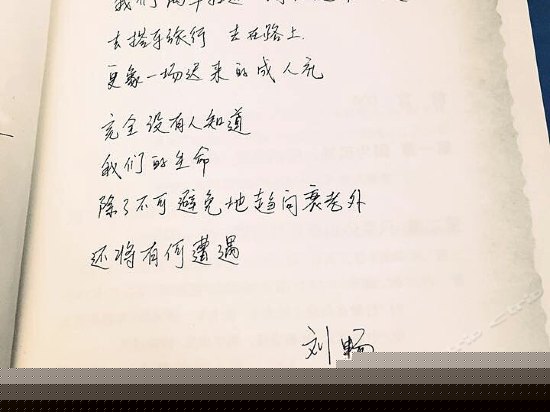 我们
去搭车旅行 去在路上
更象一场迟来的成人礼
完全没有人知道
我们的生命
除了不可避免地趋向衰老外
还将有何遭遇
刘畅